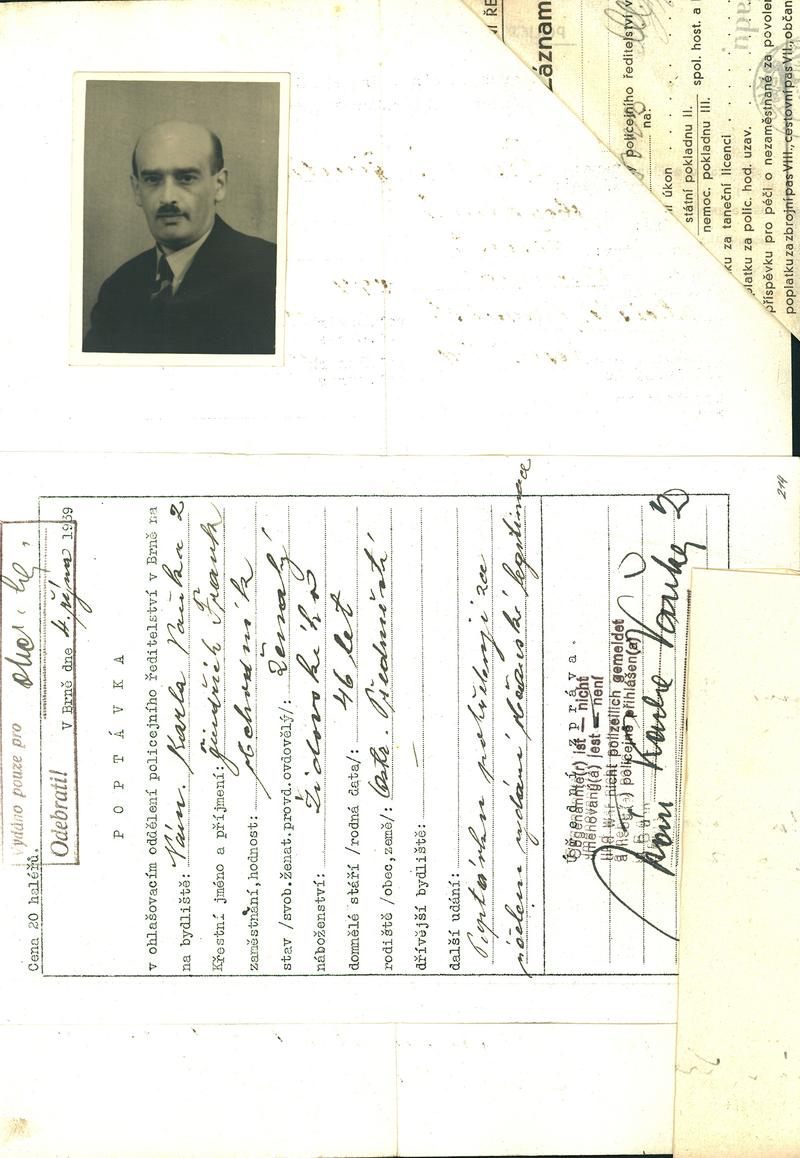 Cena 20 haléřů.
Vydáno pouze pro
Odebratil
V Brně dne 4. října 1939
P O P T Á V K A
v ohlašovacím oddělení policejního ředitelství v Brně na
na bydliště: Nám. Karla Vaňka 2
Křestní jméno a příjmení: Jindřich Frank
zaměstnání,hodnost: obchodník
stav /svob.ženat.provd.ovdovělý/: ženatý
náboženství: židovského
domnělé stáří /rodná data/: 46 let
rodiště /obec,země/:
dřívější bydliště: —
další udání:
Poptávka potvrzuji za
účelem vydání občanské legitimace
Úřední zpráva.
Obgenannte(r) ist — nicht
Jmenovaný(á) jest — není
und war nicht polizeilich gemeldet
a nebyl(a) policejně přihlášen(a)
214
Záznam
policejního ředitelství v
na:
úkon
státní pokladnu II.
nemoc. pokladnu III.
spol. host. a
ku za taneční licenci
platku za polic. hod. uzav.
příspěvku pro péči o nezaměstnané za povolen
poplatku za zbrojní pas VIII., cestovní pas VII., občan